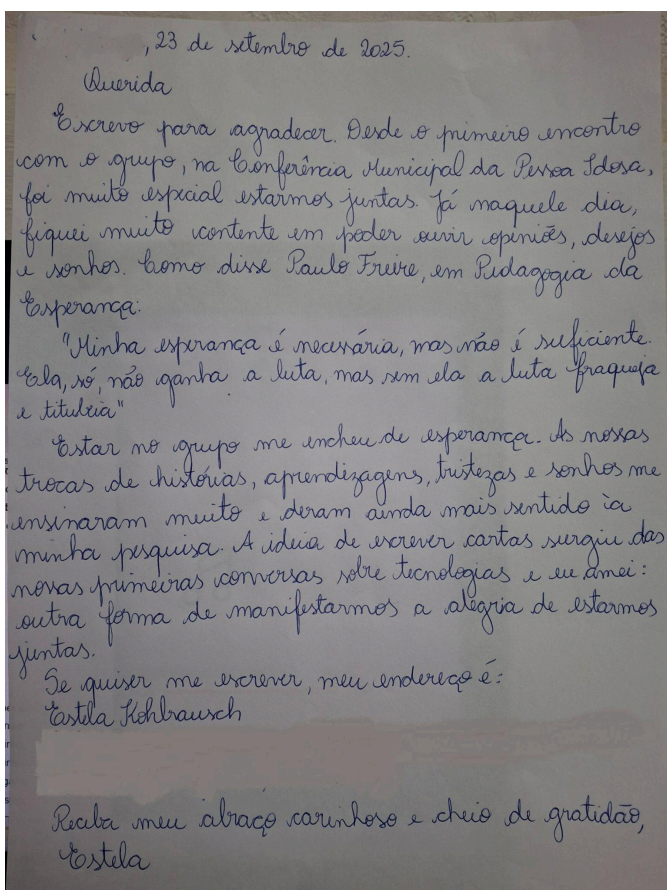 , 23 de setembro de 2025.
Querida
Escrevo para agradecer. Desde o primeiro encontro
com o grupo, na Conferência Municipal da Pessoa Idosa,
foi muito especial estarmos juntas. Já naquele dia,
fiquei muito contente em poder ouvir opiniões, desejos
e sonhos. Como disse Paulo Freire, em Pedagogia da
Esperança:
"Minha esperança é necessária, mas não é suficiente.
Ela, só, não ganha a luta, mas sem ela a luta fraqueja
e titubeia"
Estar no grupo me encheu de esperança. As nossas
trocas de histórias, aprendizagens, tristezas e sonhos me
ensinaram muito e deram ainda mais sentido à
minha pesquisa. A ideia de escrever cartas surgiu das
nossas primeiras conversas sobre tecnologias e eu amei:
outra forma de manifestarmos a alegria de estarmos
juntas.
Se quiser me escrever, meu endereço é:
Estela Kohlrausch
Receba meu abraço carinhoso e cheio de gratidão,
Estela